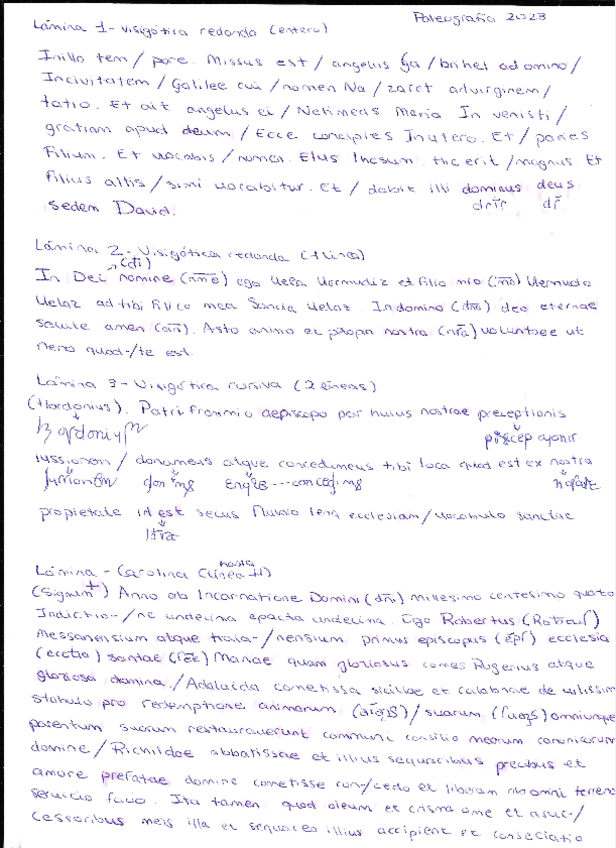 Paleografía 2023
Lámina 1- visigótica redonda (entero)
In illo tem / pore. Missus est / angelis Ga / brihel ad omino /
In civitatem / Galilee cui / nomen Na / zaret ad virginem /
tatio. Et ait angelus ei / Ne timeas Maria In venisti /
gratiam apud deum / Ecce concipies In utero. Et / paries
Filium. Et vocabis / nomen. Eius Ihesum. hic erit / magnus Et
Filius altis / simi vocabitur. Et / dabit illi dominus deus
sedem David.
Lámina 2- Visigótica redonda (+línea)
In Dei nomine (nme) ego Vela Vermudiz et filio mio Vermudo
Velaz ad tibi filico mea Sancia Velaz. In domino (dno) deo eternae
salute amen. Asto animo et propia nostra (nra) voluntaee ut
nero quod-/te est.
Lámina 3- Visigótica cursiva (2 líneas)
(Hordonius). Patri Fronimio aepiscopo per huius nostrae preceptionis
iussionem / donameus atque concedimeus tibi loca quod est ex nostra
propietate id est secus fluvio ecclesiam / vocabulo sanctae
Lámina - Carolina (línea 11)
hasta
(Signum +) Anno ab Incarnatione Domini (dni) millesimo centesimo quarto
Indictio-/ne undecima epacta undecima. Ego Robertus
Messanensium atque troia-/nensium primus episcopus (epi) ecclesia
santae Mariae quam gloriosus comes Rogerius atque
gloriosa domina / Adalaida cometissa siciliae et calabriae de vilissim
stabulo pro redemptione animarum / suarum omniunque
parentum suorum restauraverunt communi consilio meorum canonicorum
domine / Richildae abbatissae et illius sequacibus precibus et
amore prefatae domine cometisse con-/cedo et liberam ab omni terreno
servicio facio. Ita tamen quod oleum et crisma ame et asuc-/
cessoribus meis illa et sequaces illius accipient et consecratio